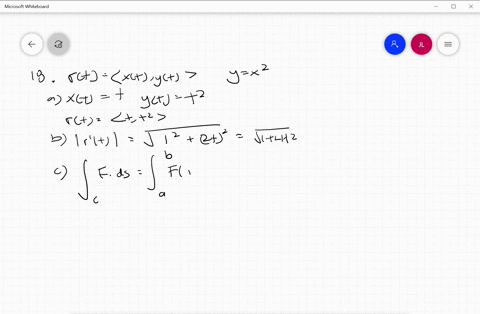 Microsoft Whiteboard
JL
18. r(t) = <x(t), y(t)> y=x²
a) x(t) = t y(t) = t²
r(t) = <t, t²>
b) |r'(t)| = √(1² + (2t)²) = √(1+4t²)
c) ∫_C F. ds = ∫_a^b F(,